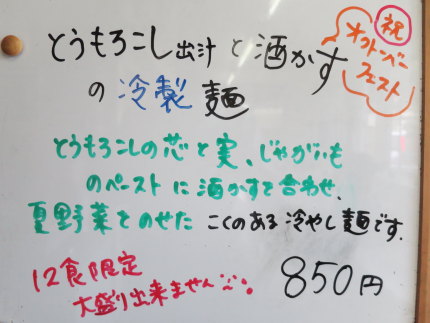 祝
オクトーバー
フェスト
とうもろこし出汁と酒かす
の冷製麺
とうもろこしの芯と実、じゃがいも
のペーストに酒かすを合わせ、
夏野菜をのせた こくのある冷やし麺です.
12食限定
大盛り出来ません
850円